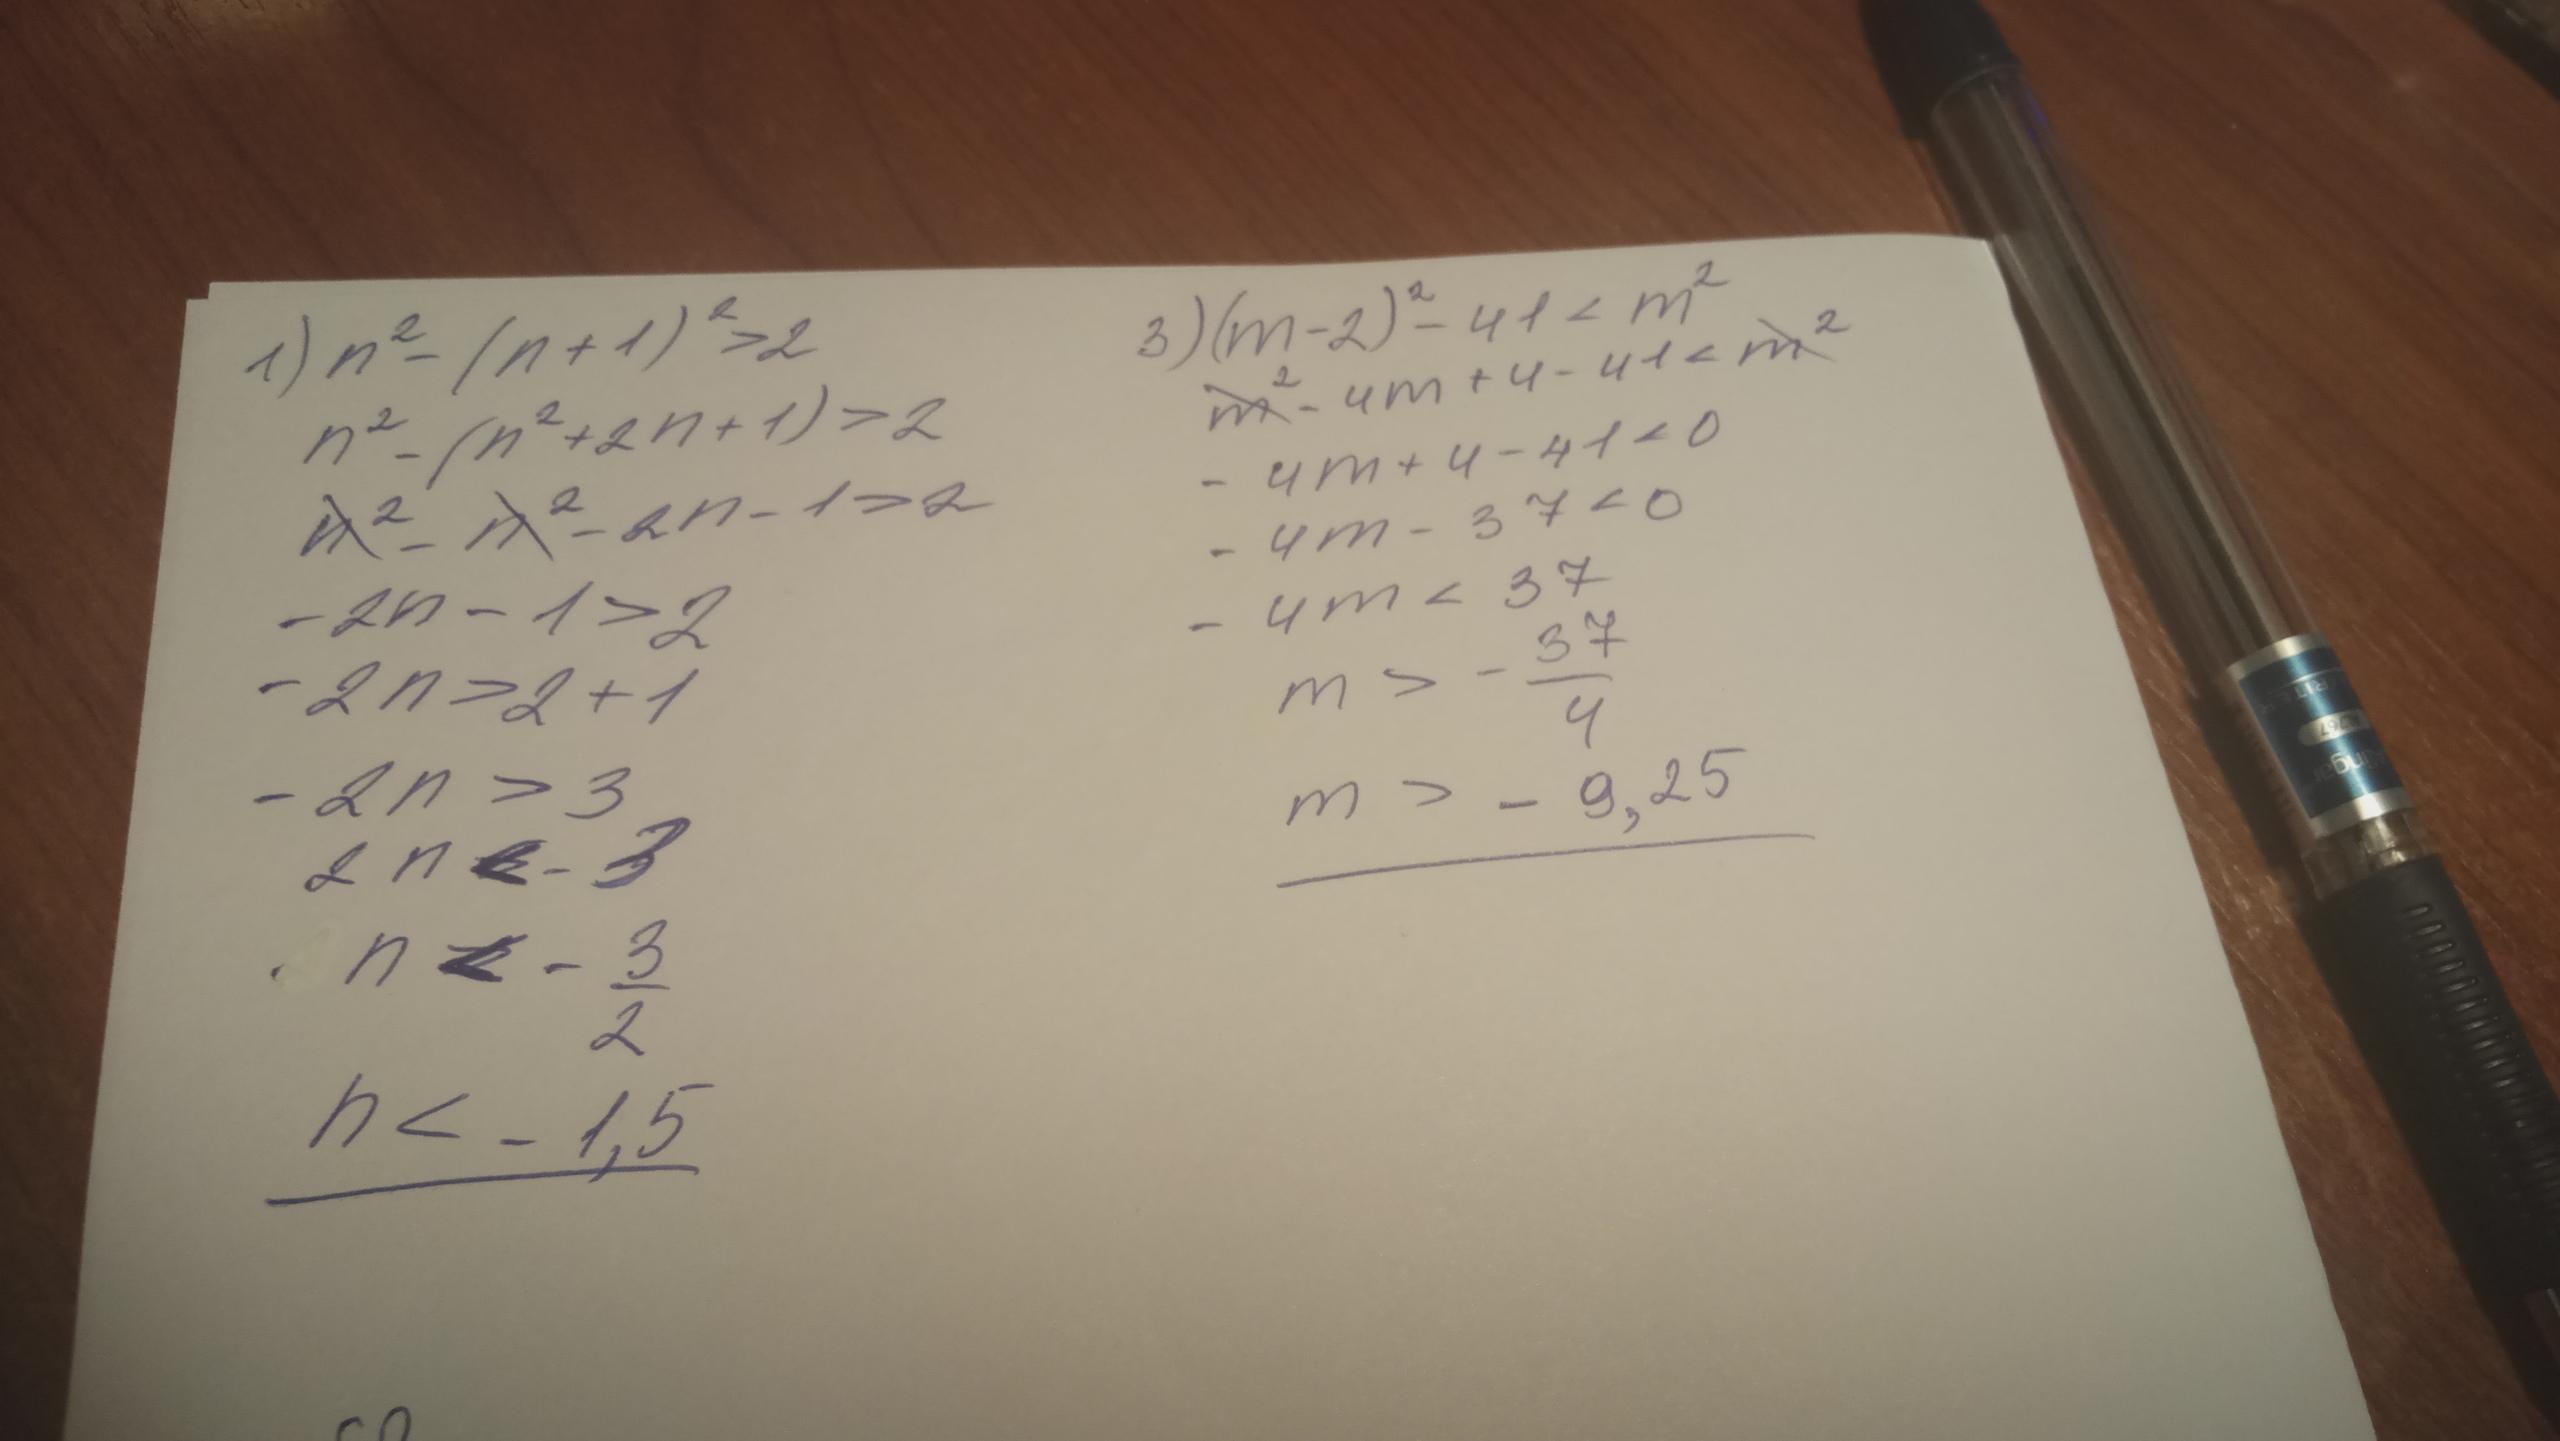 1) n² - (n+1)² > 2
n² - (n² + 2n + 1) > 2
n² - n² - 2n - 1 > 2
- 2n - 1 > 2
- 2n > 2 + 1
- 2n > 3
2n < - 3
n < - 3/2
n < - 1,5
3) (m-2)² - 41 < m²
m² - 4m + 4 - 41 < m²
- 4m + 4 - 41 < 0
- 4m - 37 < 0
- 4m < 37
m > - 37/4
m > - 9,25